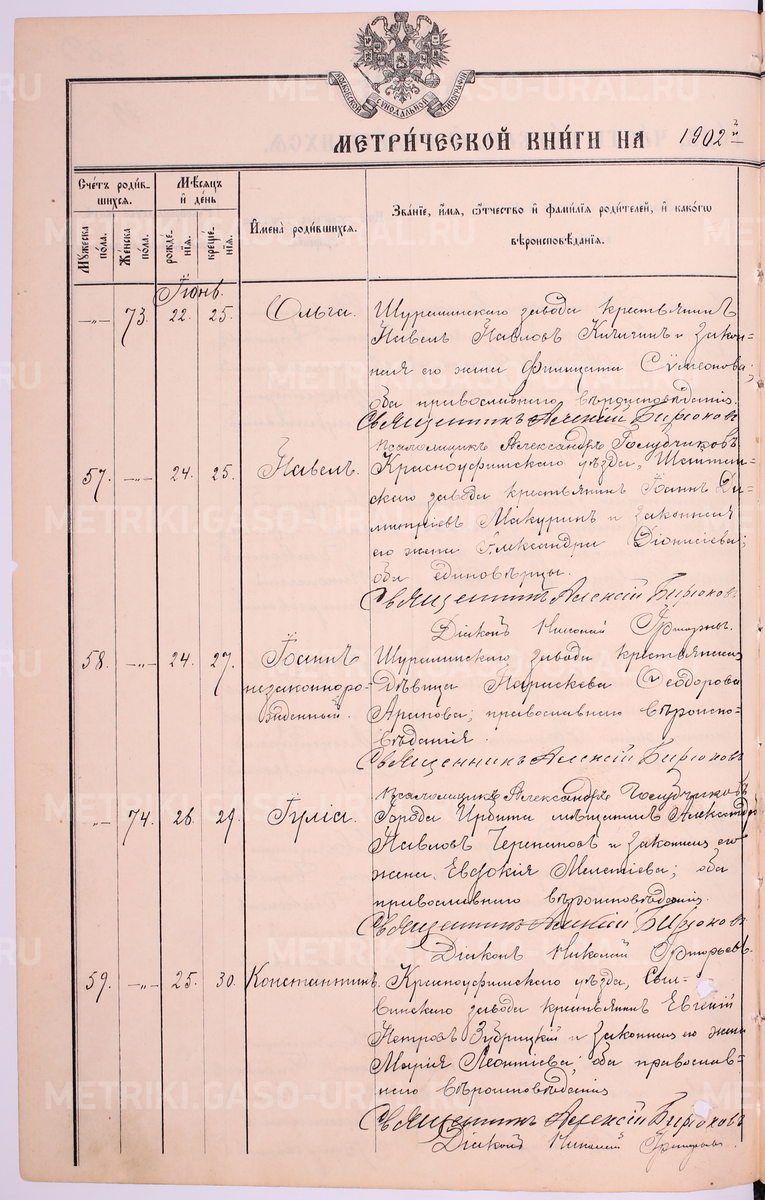 МОСКОВСКОЙ СУНОДАЛЬНОЙ ТИПОГРАФІИ
МЕТРИЧЕСКОЙ КНИГИ НА 1902 й
Счетъ родив-
шихся.
Мѣсяцъ
и день
Мужеска
пола.
Женска
пола.
рожде-
нія.
креще-
нія.
Имена родившихся.
Званіе, имя, отчество и фамилія родителей, и какого
вѣроисповѣданія.
Іюнь.
-„- 73. 22. 25. Ольга. Шуралинскаго завода крестьянинъ
Павелъ Павловъ Кичигинъ и закон-
ная его жена Фииицата Сѵмеонова;
оба православнаго вѣроисповѣданія.
Священникъ Алексій Бирюковъ
Псаломщикъ Александръ Голубчиковъ
57. -„- 24. 25. Павелъ. Красноуфимскаго уѣзда, Шайтан-
скаго завода крестьянинъ Іоаннъ Ди-
митріевъ Макуринъ и законная
его жена Александра Діонисіева;
оба единовѣрцы.
Священникъ Алексій Бирюковъ
Діаконъ Николай Григорьевъ.
58. -„- 24. 27. Іоаннъ Шуралинскаго завода крестьянская
незаконноро- дѣвица Параскева Ѳеодорова
жденный. Арапова; православнаго вѣроиспо-
вѣданія.
Священникъ Алексій Бирюковъ
Псаломщикъ Александръ Голубчиковъ
-„- 74. 26. 29. Іулія. Города Ирбита мѣщанинъ Александръ
Павловъ Черепановъ и законная его
жена Евдокія Мелетіева; оба
православнаго вѣроисповѣданія.
Священникъ Алексій Бирюковъ
Діаконъ Николай Григорьевъ.
59. -„- 25. 30. Константинъ. Красноуфимскаго уѣзда, Сыл-
винскаго завода крестьянинъ Евгеній
Петровъ Зубрицкій и законная его жена
Марія Леонтіева; оба православ-
наго вѣроисповѣданія
Священникъ Алексій Бирюковъ
Діаконъ Николай Григорьевъ
METRIKI.GASO-URAL.RU